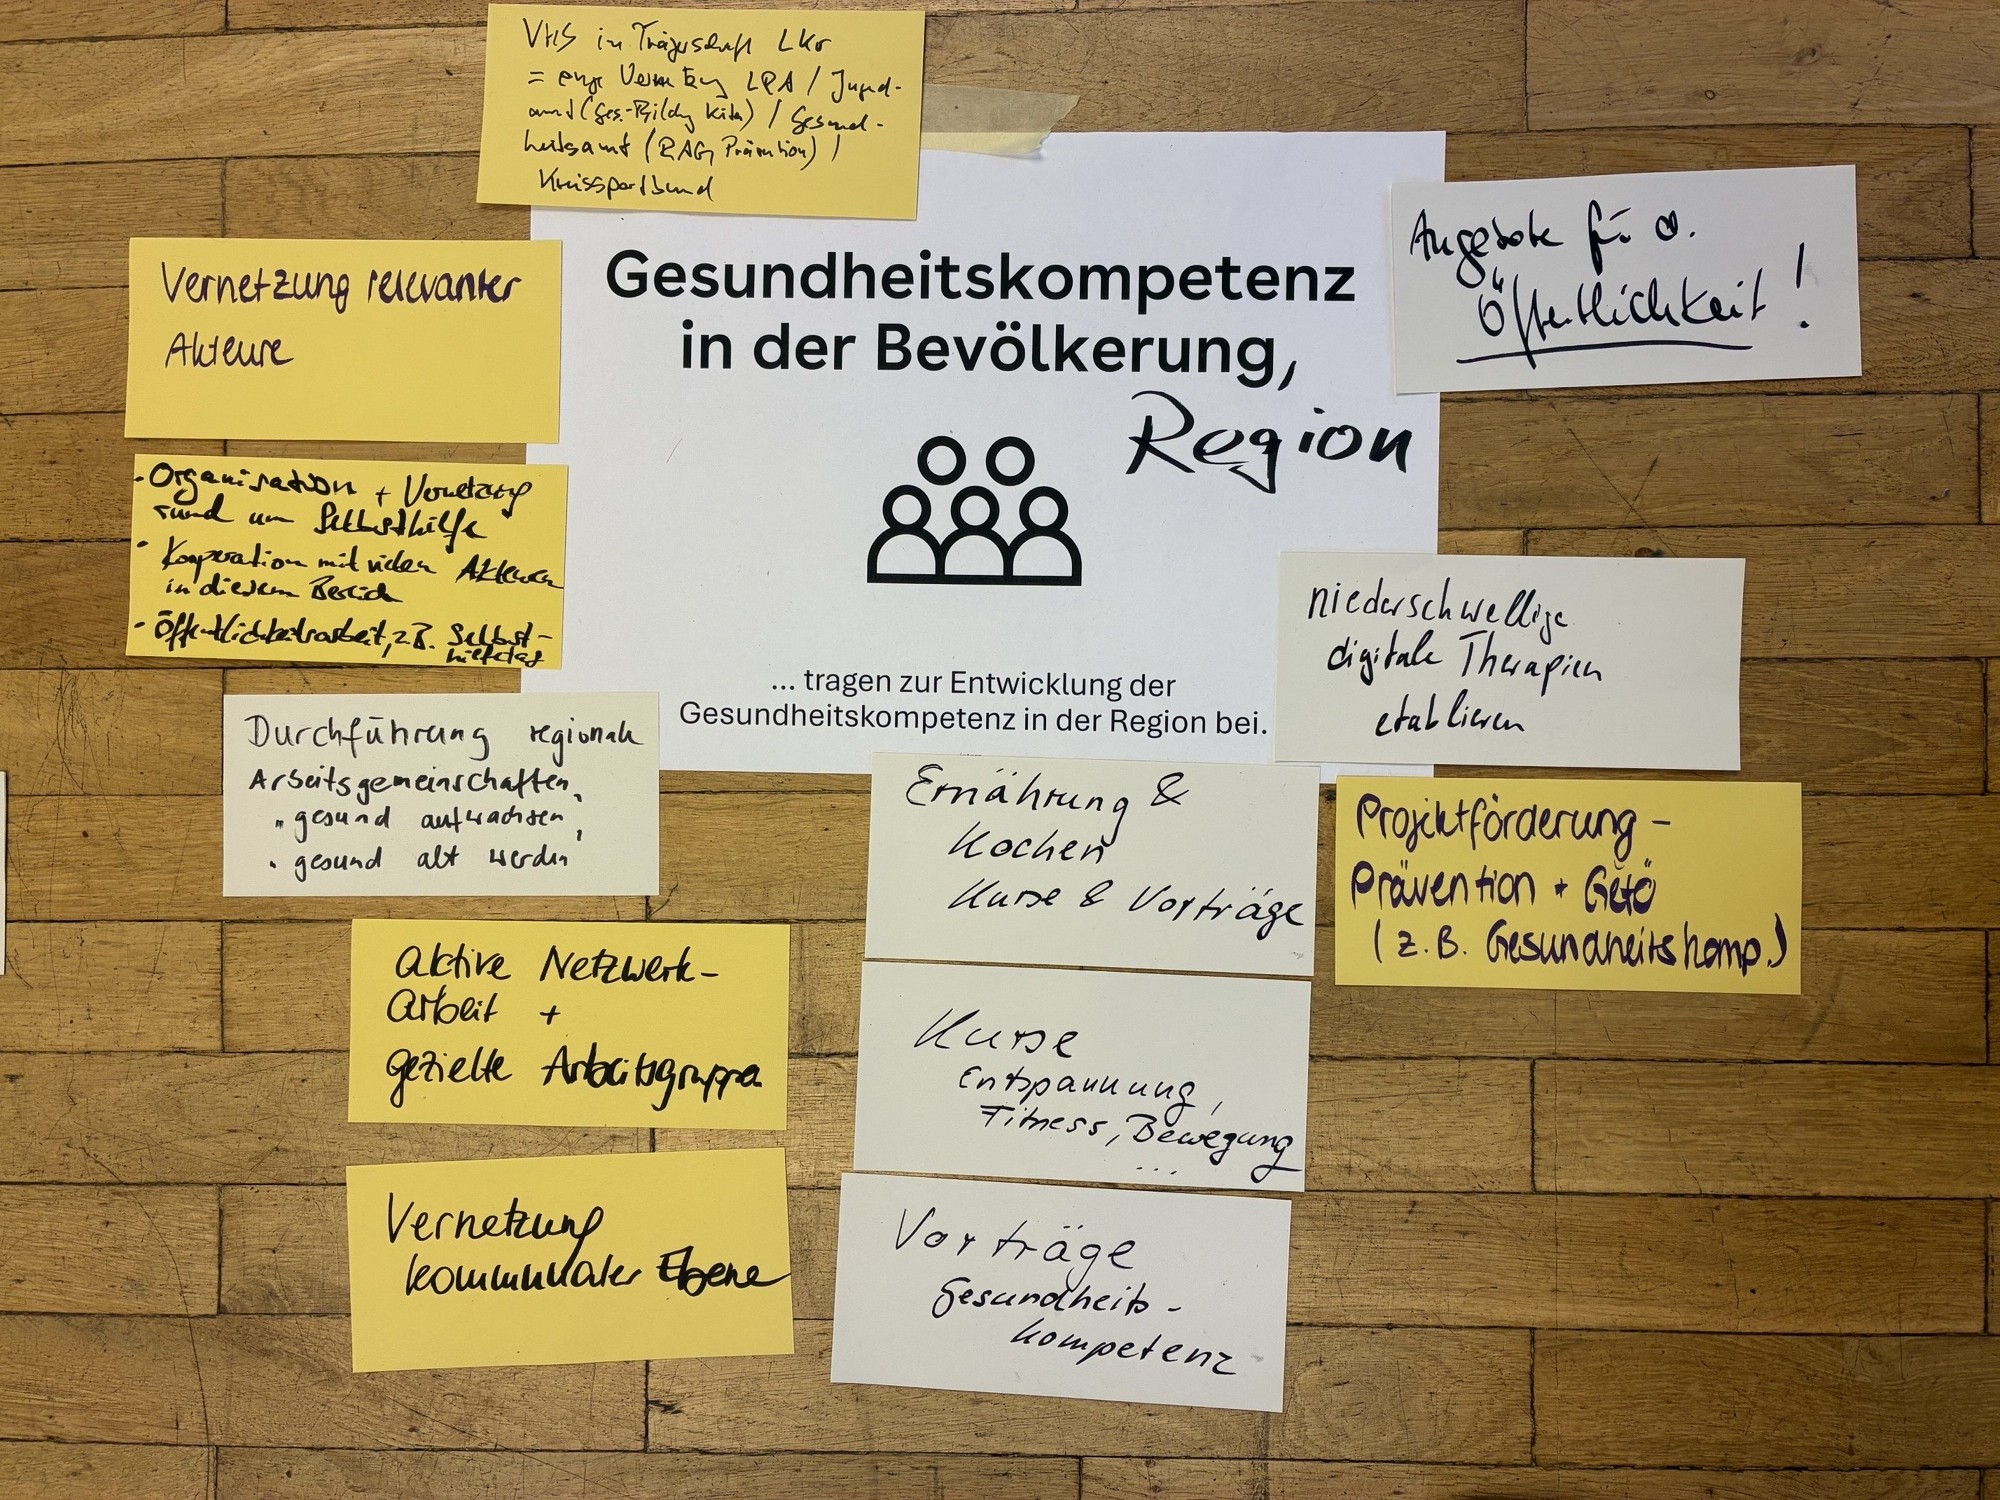 VHS in Trägerschaft LKr
= enge Vernetzung LRA / Jugend-
amt (Ges.-Bildg Kita) / Gesund-
heitsamt (RAG Prävention) /
Kreissportbund
Gesundheitskompetenz
in der Bevölkerung,
Region
... tragen zur Entwicklung der
Gesundheitskompetenz in der Region bei.
Angebote für d.
Öffentlichkeit!
Vernetzung relevanter
Akteure
· Organisation + Vernetzung
rund um Selbsthilfe
· Kooperation mit vielen Akteuren
in diesem Bereich
· Öffentlichkeitsarbeit, z.B. Selbst-
hilfetag
niederschwellige
digitale Therapien
etablieren
Durchführung regionale
Arbeitsgemeinschaften
„gesund aufwachsen"
„gesund alt werden"
Ernährung &
Kochen
Kurse & Vorträge
Projektförderung -
Prävention + Gefö
(z.B. Gesundheitskomp.)
aktive Netzwerk-
arbeit +
gezielte Arbeitsgruppen
Kurse
Entspannung,
Fitness, Bewegung
...
Vernetzung
kommunaler Ebene
Vorträge
Gesundheits-
kompetenz